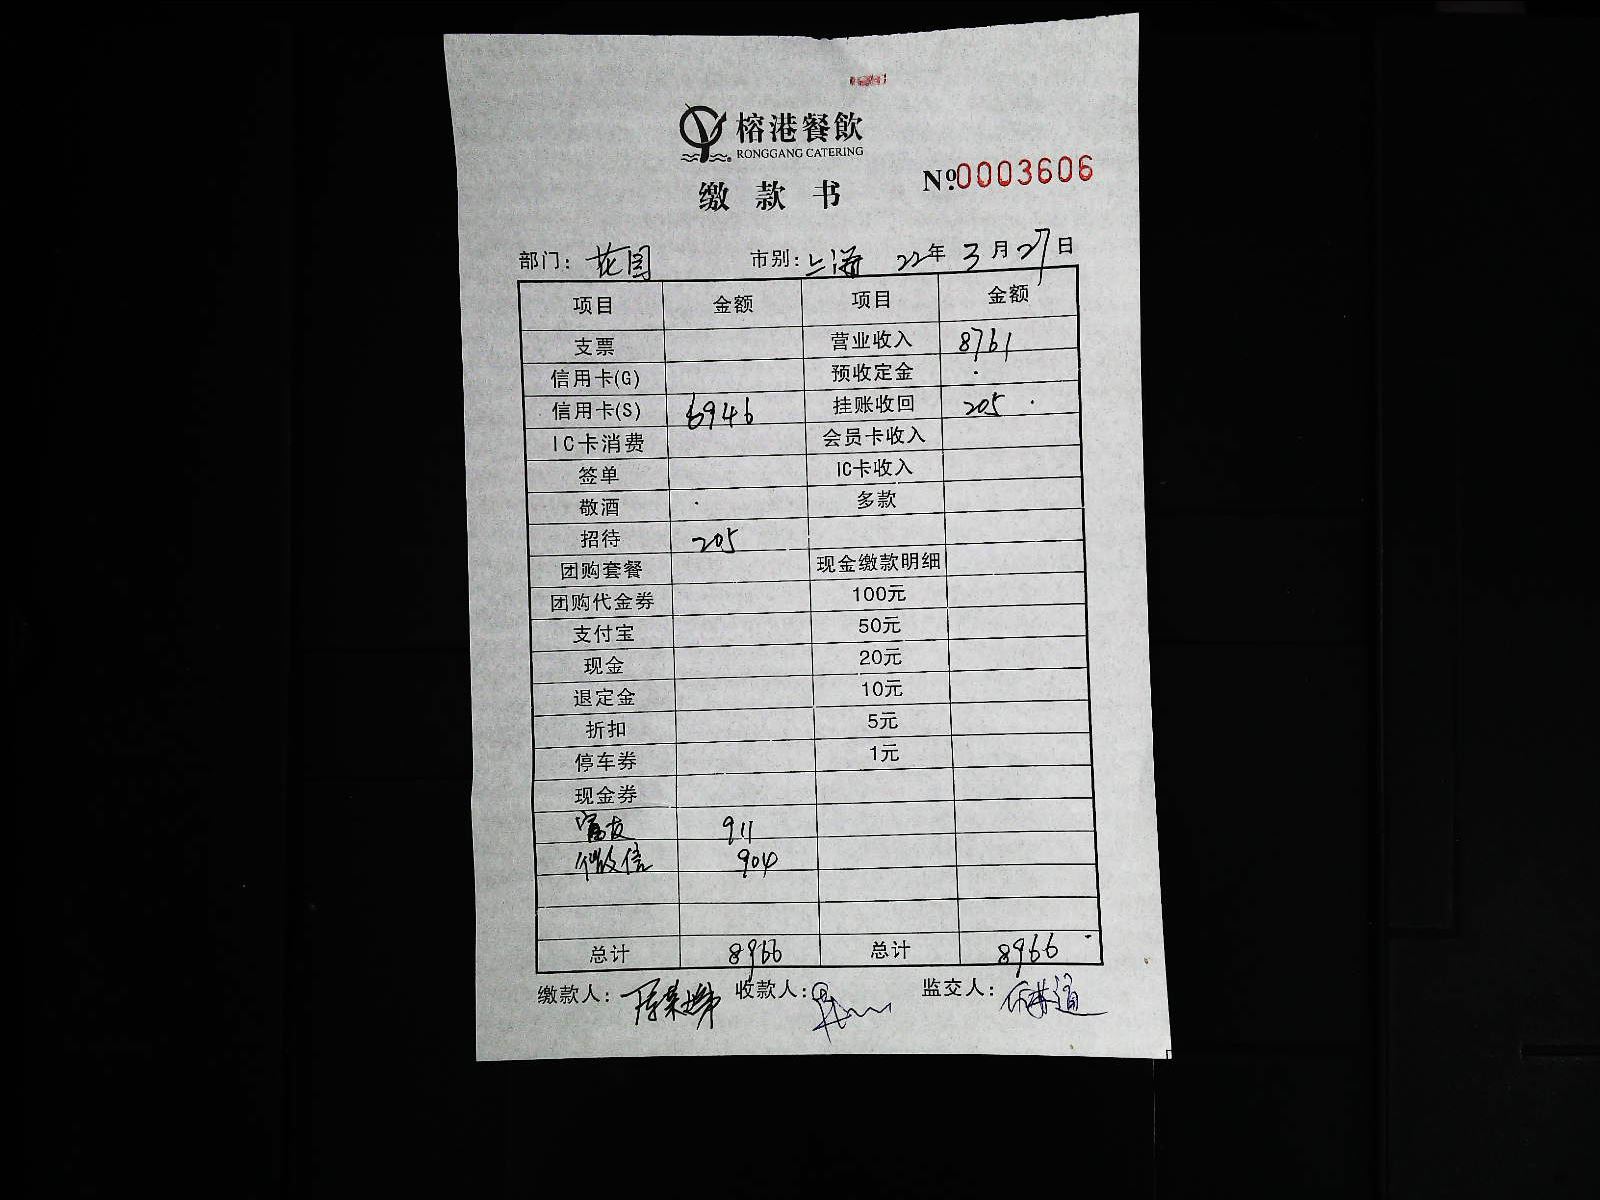 榕港餐飲
RONGGANG CATERING
缴款书
№0003606
部门：花园 市别：上海 22年3月27日
项目 金额 项目 金额
支票 营业收入 8761
信用卡(G) 预收定金
信用卡(S) 6946 挂账收回 205
IC卡消费 会员卡收入
签单 IC卡收入
敬酒 多款
招待 205
团购套餐 现金缴款明细
团购代金券 100元
支付宝 50元
现金 20元
退定金 10元
折扣 5元
停车券 1元
现金券
富友 911
微信 904
总计 8966 总计 8966
缴款人： 收款人： 监交人：